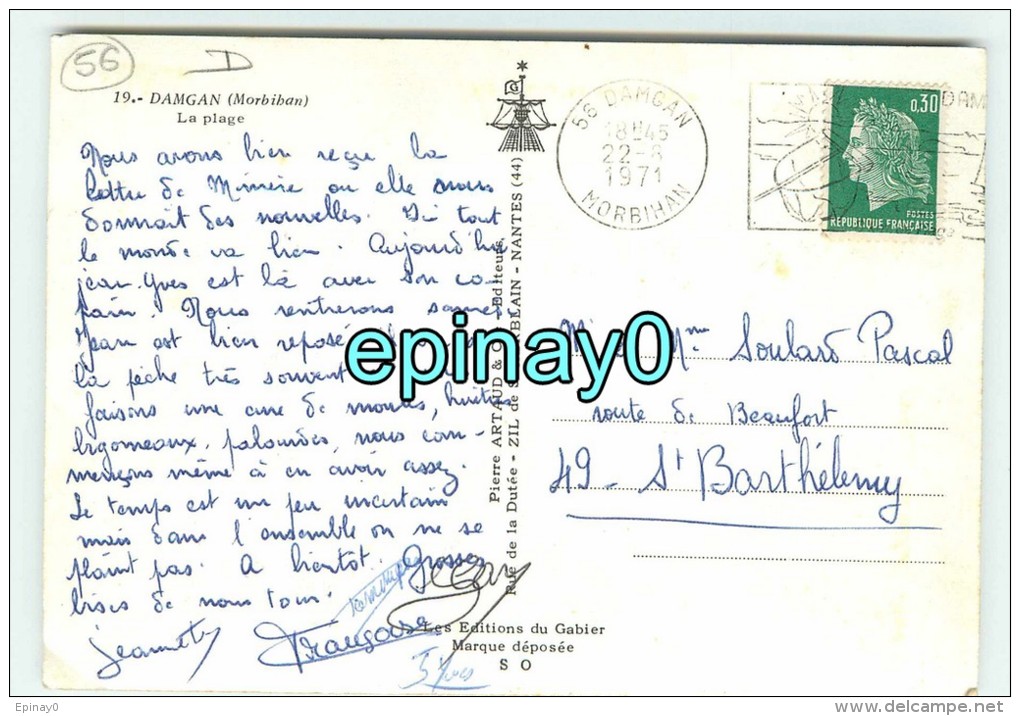 56
D
19.- DAMGAN (Morbihan)
La plage
Nous avons bien reçu la
lettre de Mimère ou elle nous
donnait des nouvelles. Ici tout
le monde va bien. Aujourd'hui
jean-Yves est là avec son co-
pain. Nous rentrerons samedi
Jean est bien reposé
la pêche très souvent
faisons une cure de moules, huitres
bigorneaux, palourdes, nous com-
mençons même à en avoir assez.
Le temps est un peu incertain
mais dans l'ensemble on ne se
plaint pas. A bientôt. Grosses
bises de nous tous.
Jean
Jeannette
Françoise
J Yves
Pierre ARTAUD & C Editeurs
Rue de la Dutée - ZIL de S BLAIN - NANTES (44)
Les Editions du Gabier
Marque déposée
S O
56 DAMGAN
18H45
22-8
1971
MORBIHAN
DAM
0,30
POSTES
REPUBLIQUE FRANÇAISE
Mme Soulard Pascal
route de Beaufort
49 - St Barthélemy
epinay0
Epinay0
http://www.delcampe.net